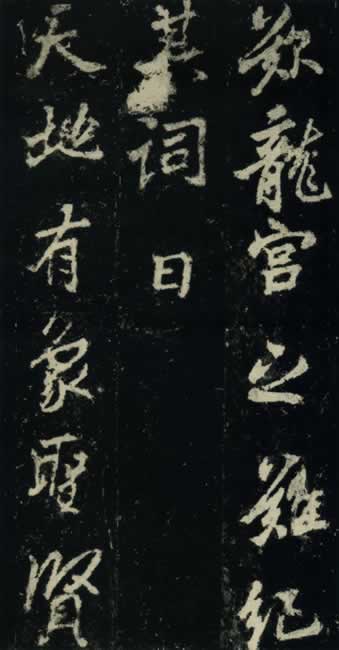 歎龍宮之難紀
其詞曰
天地有象聖賢